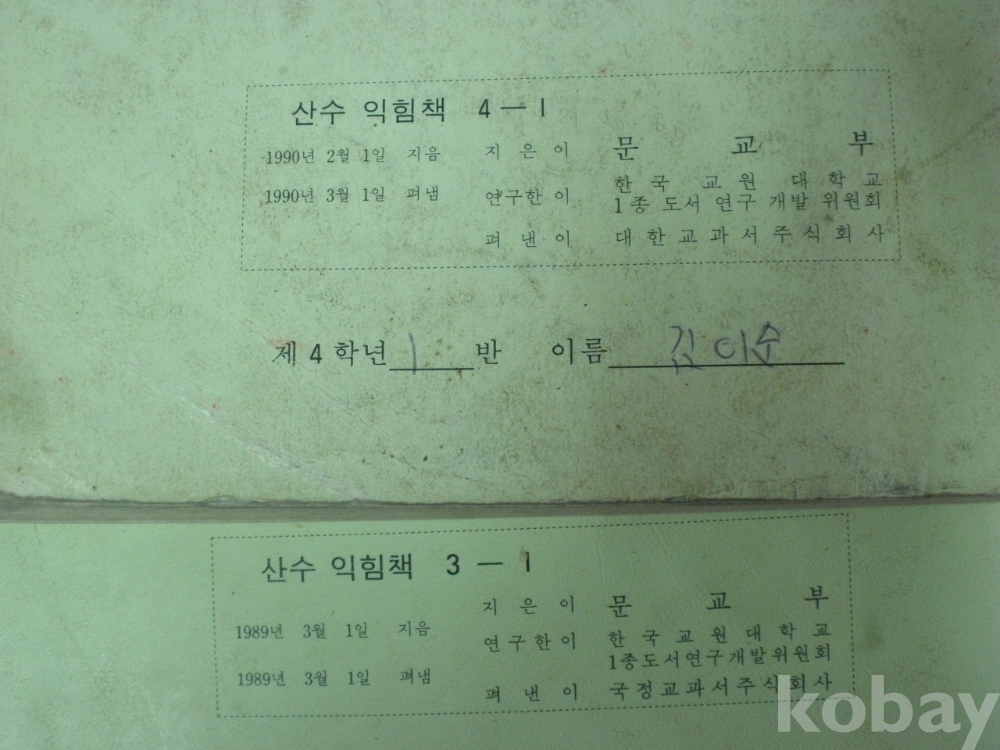 산수 익힘책 4 — 1
1990년 2월 1일 지음 지은이 문교부
1990년 3월 1일 펴냄 연구한이 한국교원대학교
1종 도서 연구 개발 위원회
펴낸이 대한교과서주식회사
제 4 학년 1 반 이름 김이순
산수 익힘책 3 — 1
지은이 문교부
1989년 3월 1일 지음 연구한이 한국교원대학교
1종도서연구개발위원회
1989년 3월 1일 펴냄 펴낸이 국정교과서주식회사
kobay